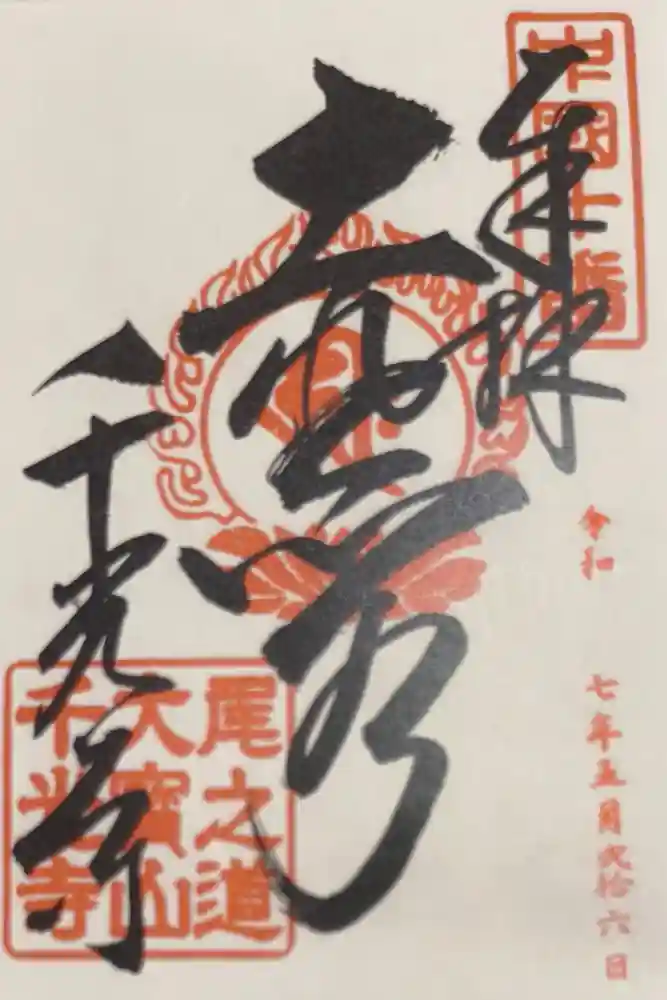 中國十番
奉拝
令和 七年五月弐拾六日
千光寺
尾之道
大寶山
千光寺